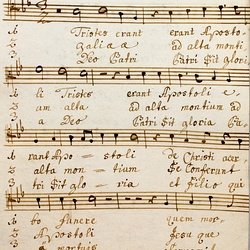 1. Tristes erant erant Apostoli
2. Galilaea ad alta monti
3. Deo Patri Patri Sit glori
1. li Tristes erant Apostoli e
2. um alta ad alta montium ad
3. a Deo Patri Sit gloria Pa
1. rant Apo = stoli De Christi acer
2. alta mon = tium Se conferunt
3. tri Sit glo = ria et filio qui
1. to funere Quem mor
2. Apostoli Jesu que
3. mortuis